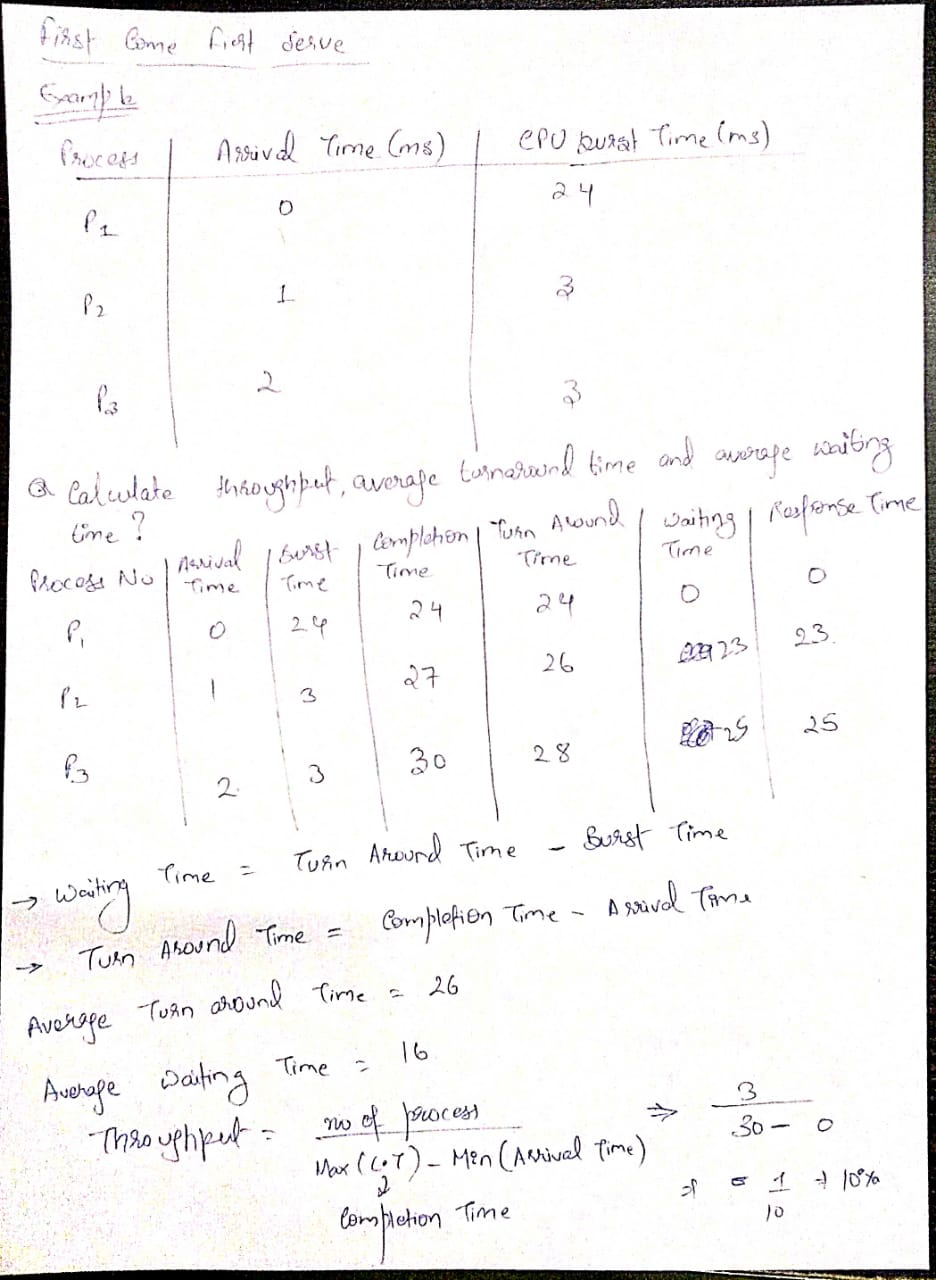 First Come First Serve
Example
Process | Arrival Time (ms) | CPU Burst Time (ms)
P1 0 24
P2 1 3
P3 2 3
Q Calculate throughput, average turnaround time and average waiting
time ?
Process No | Arrival Time | Burst Time | Completion Time | Turn Around Time | Waiting Time | Response Time
P1 0 24 24 24 0 0
P2 1 3 27 26 23 23.
P3 2. 3 30 28 25 25
→ Waiting Time = Turn Around Time - Burst Time
→ Turn Around Time = Completion Time - Arrival Time
Average Turn around Time = 26
Average Waiting Time = 16
Throughput = no of process / Max (C.T) - Min (Arrival Time) ⇒ 3 / 30 - 0
Completion Time ⇒ = 1/10 → 10%